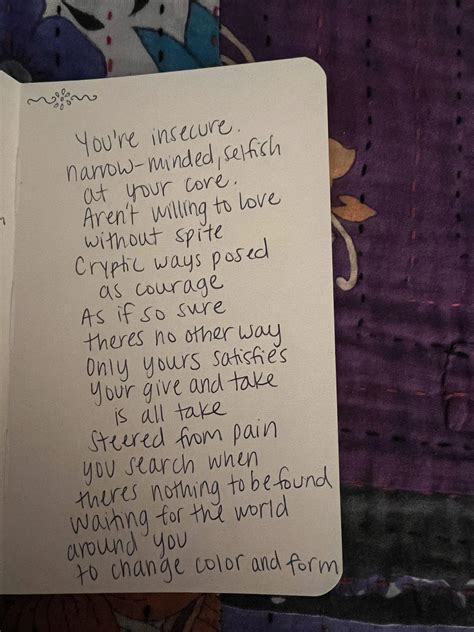 You're insecure.
narrow-minded, selfish
at your core.
Aren't willing to love
without spite
Cryptic ways posed
as courage
As if so sure
theres no other way
Only yours satisfies
Your give and take
is all take
Steered from pain
you search when
theres nothing to be found
waiting for the world
around you
to change color and form